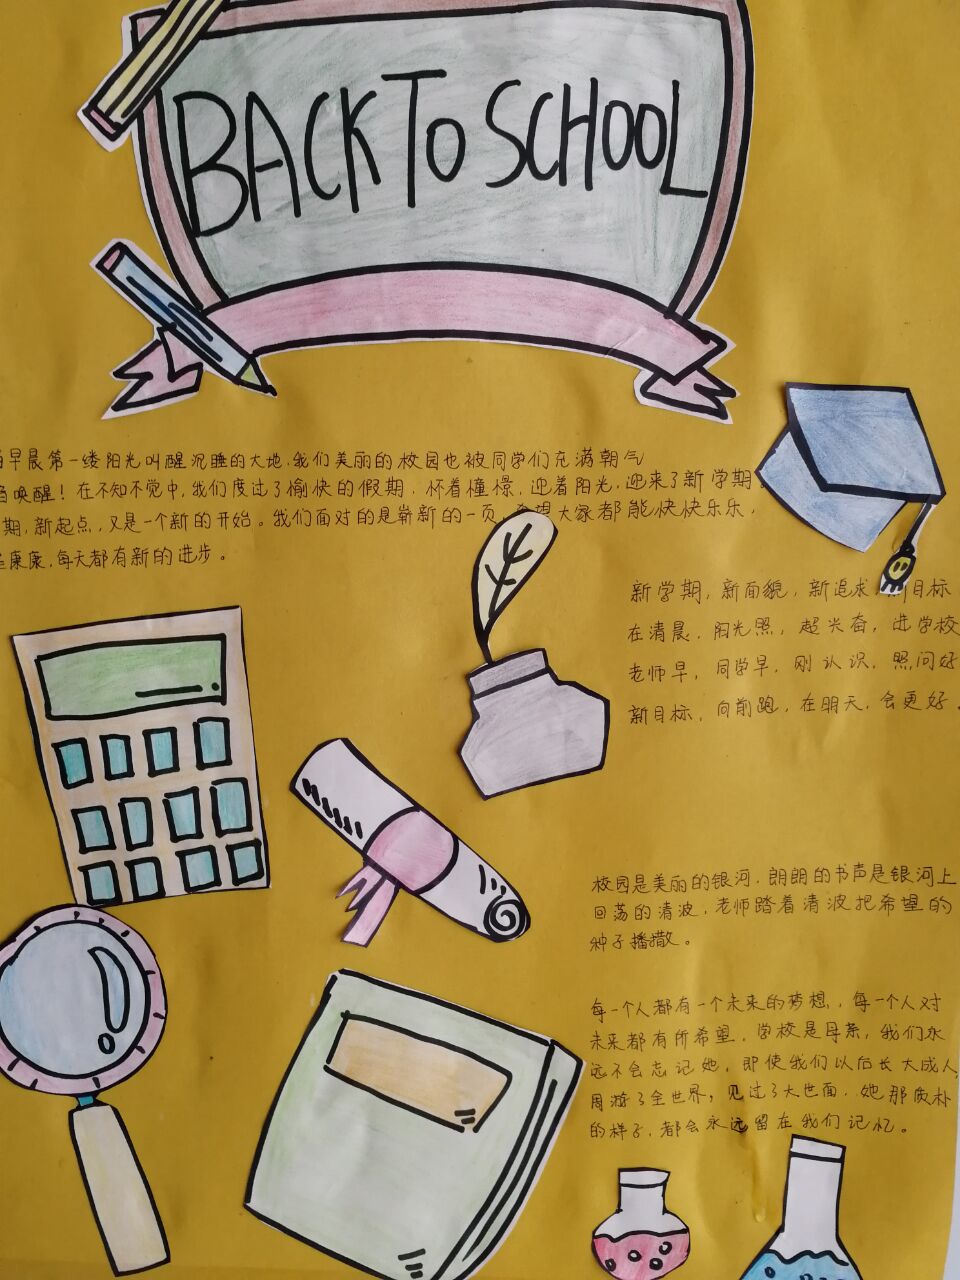 BACK TO SCHOOL
早晨第一缕阳光叫醒沉睡的大地,我们美丽的校园也被同学们充满朝气
唤醒！在不知不觉中,我们度过了愉快的假期,怀着憧憬,迎着阳光,迎来了新学期
期,新起点,又是一个新的开始。我们面对的是崭新的一页,希望大家都能快快乐乐,
康康,每天都有新的进步。
新学期,新面貌,新追求,新目标
在清晨,阳光照,超兴奋,进学校
老师早,同学早,刚认识,照问好
新目标,向前跑,在明天,会更好。
校园是美丽的银河,朗朗的书声是银河上
回荡的清波,老师踏着清波把希望的
种子播撒。
每一个人都有一个未来的梦想,每一个人对
未来都有所希望,学校是母亲,我们永
远不会忘记她,即使我们以后长大成人,
周游了全世界,见过了大世面,她那质朴
的样子,都会永远留在我们记忆。